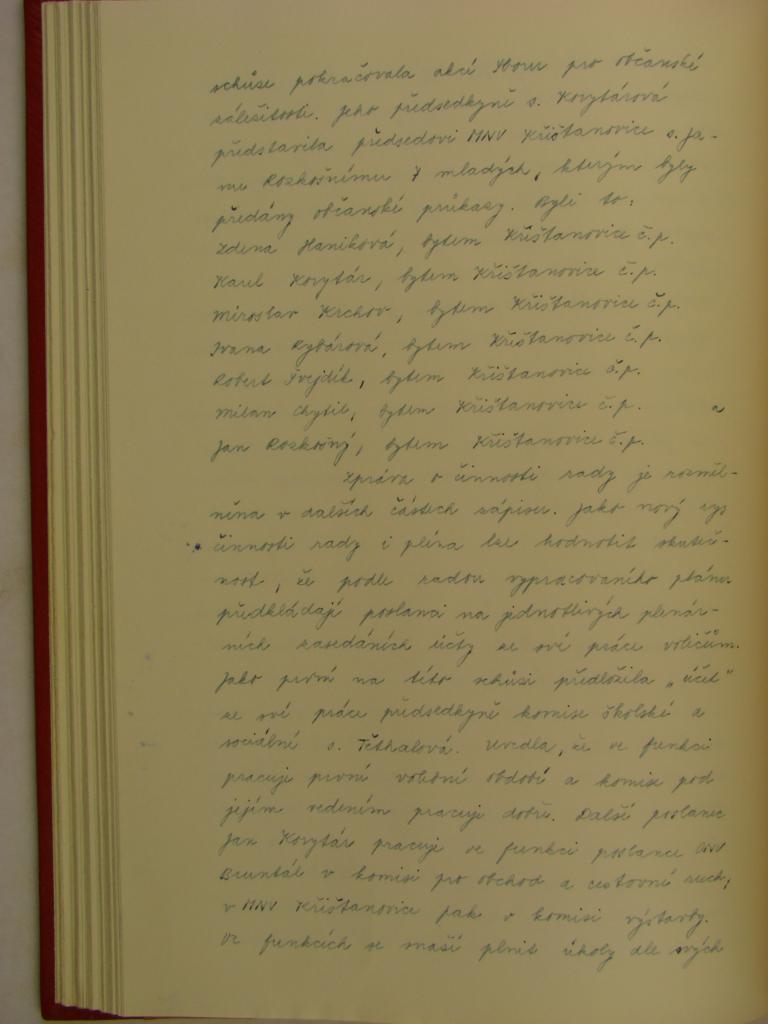 schůze pokračovala akcí Sboru pro občanské
záležitosti. Jeho předsedkyně s. Korytárová
představila předsedovi MNV Křišťanovice s. Ja-
nu Rozkošnému 7 mladých, kterým byly
předány občanské průkazy. Byli to:
Zdena Haniková, bytem Křišťanovice č.p.
Karel Korytár, bytem Křišťanovice č.p.
Miroslav Krchov, bytem Křišťanovice č.p.
Ivana Rybárová, bytem Křišťanovice č.p.
Robert Švejdík, bytem Křišťanovice č.p.
Milan Chytil, bytem Křišťanovice č.p. a
Jan Rozkošný, bytem Křišťanovice č.p.
Zpráva o činnosti rady je rozměl-
něna v dalších částech zápisu. Jako nový rys
činnosti rady i pléna lze hodnotit skuteč-
nost, že podle radou vypracovaného plánu
předkládají poslanci na jednotlivých plenár-
ních zasedáních účty ze své práce voličům.
Jako první na této schůsi předložila „účet"
ze své práce předsedkyně komise školské a
sociální s. Těthalová. Uvedla, že ve funkci
pracuje první volební období a komise pod
jejím vedením pracuje dobře. Další poslanec
Jan Korytár pracuje ve funkci poslance ONV
Bruntál v komisi pro obchod a cestovní ruch,
v MNV Křišťanovice pak v komisi výstavby.
Ve funkcích se snaží plnit úkoly dle svých